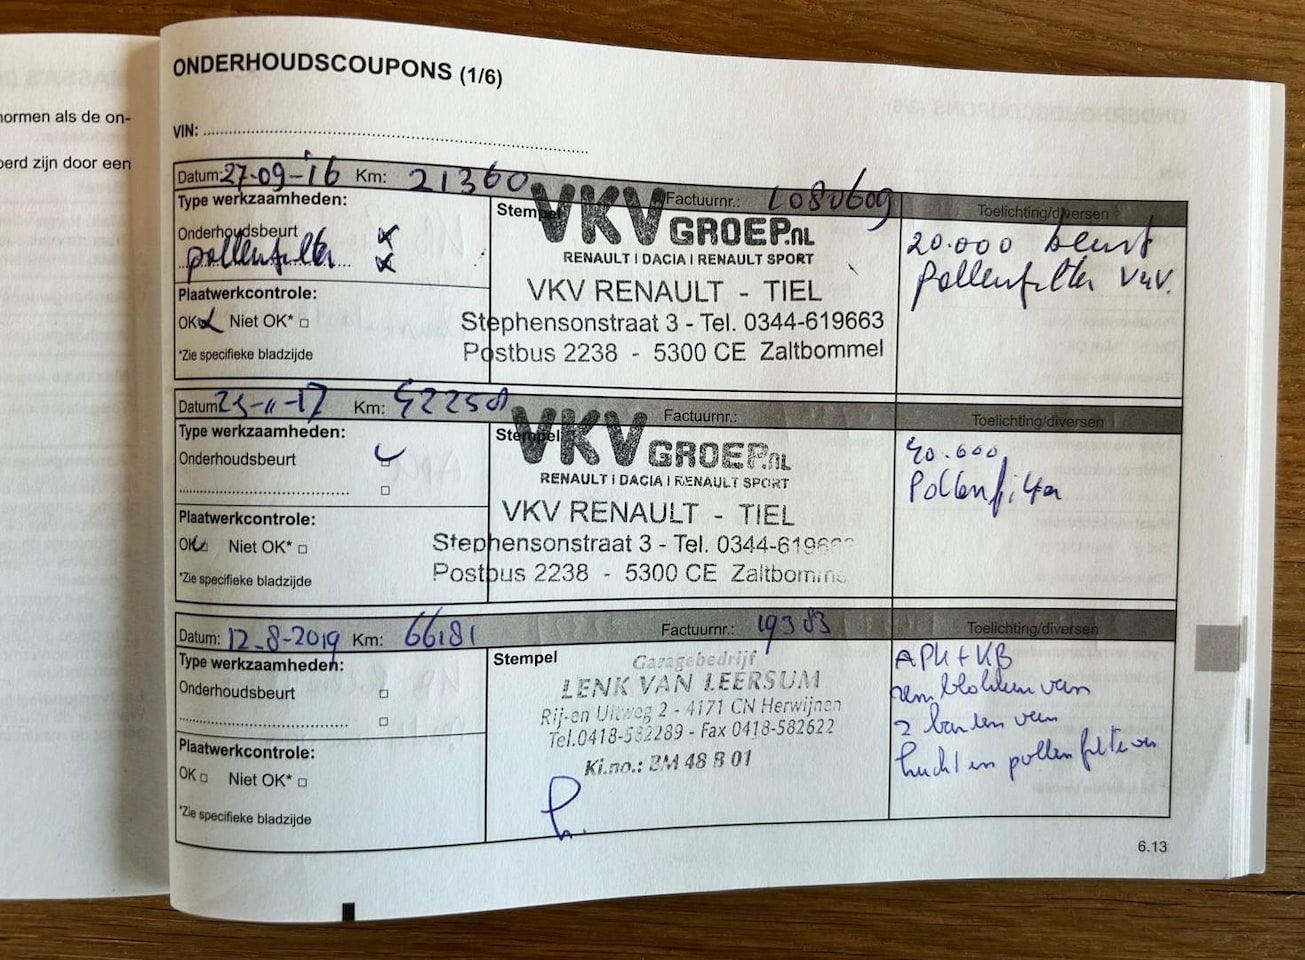 normen als de on-
oerd zijn door een
ONDERHOUDSCOUPONS (1/6)
VIN:
Datum: 27-09-16 Km: 21360 Factuurnr.: Toelichting/diversen
Type werkzaamheden:
Onderhoudsbeurt
pollenfilter
Plaatwerkcontrole:
OK Niet OK*
*Zie specifieke bladzijde
Stempel
VKV GROEP.NL
RENAULT | DACIA | RENAULT SPORT
VKV RENAULT - TIEL
Stephensonstraat 3 - Tel. 0344-619663
Postbus 2238 - 5300 CE Zaltbommel
20.000 beurt
Pollenfilter VuV.
Datum: Km: 42258 Factuurnr.: Toelichting/diversen
Type werkzaamheden:
Onderhoudsbeurt
Plaatwerkcontrole:
OK Niet OK*
*Zie specifieke bladzijde
Stempel
VKV GROEP.NL
RENAULT | DACIA | RENAULT SPORT
VKV RENAULT - TIEL
Stephensonstraat 3 - Tel. 0344-619663
Postbus 2238 - 5300 CE Zaltbommel
40.000
Pollenfilter
Datum: 12-8-2019 Km: 66181 Factuurnr.: 19383 Toelichting/diversen
Type werkzaamheden:
Onderhoudsbeurt
Plaatwerkcontrole:
OK Niet OK*
*Zie specifieke bladzijde
Stempel
Garagebedrijf
LENK VAN LEERSUM
Rij-en Uitweg 2 - 4171 CN Herwijnen
Tel.0418-582289 - Fax 0418-582622
Ki.no.: BM 48 B 01
APK + KB
remblokken van
2 banden
lucht en pollenfilter
6.13